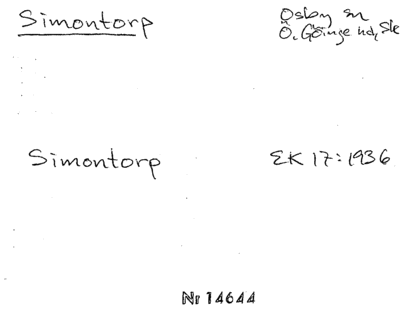 Simontorp
Osby sn
Ö. Göinge hd, Sk
Simontorp
EK 17:1936
Nr 14644